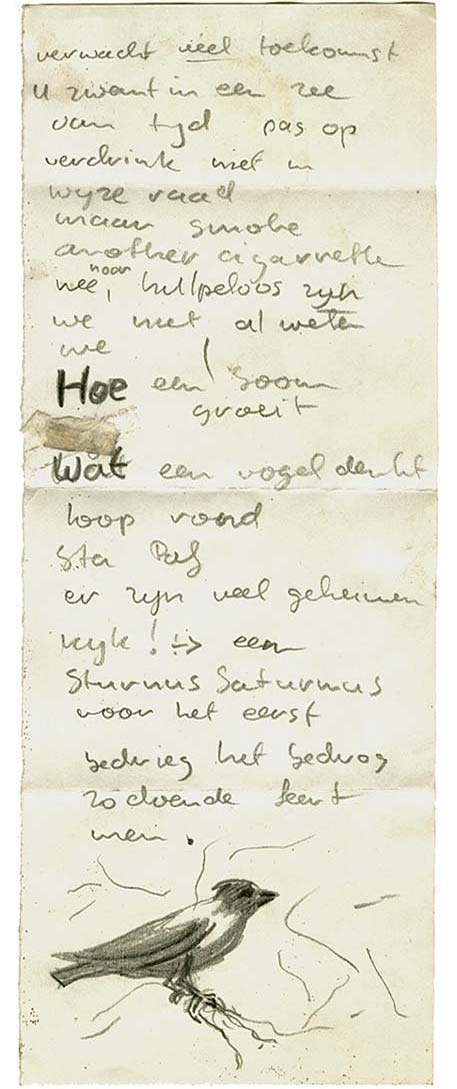 verwacht veel toekomst
u zwemt in een zee
van tyd pas op
verdrink niet in
wyze raad
maar smoke
another cigarrette
nee, hulpeloos zyn
we niet al weten
we
Hoe een boom
groeit
Wat een vogel denkt
loop rond
sta
er zyn veel geheimen
kyk! → een
Sturnus Saturnus
voor het eerst
bedrieg het bedrog
zodoende leert
men.